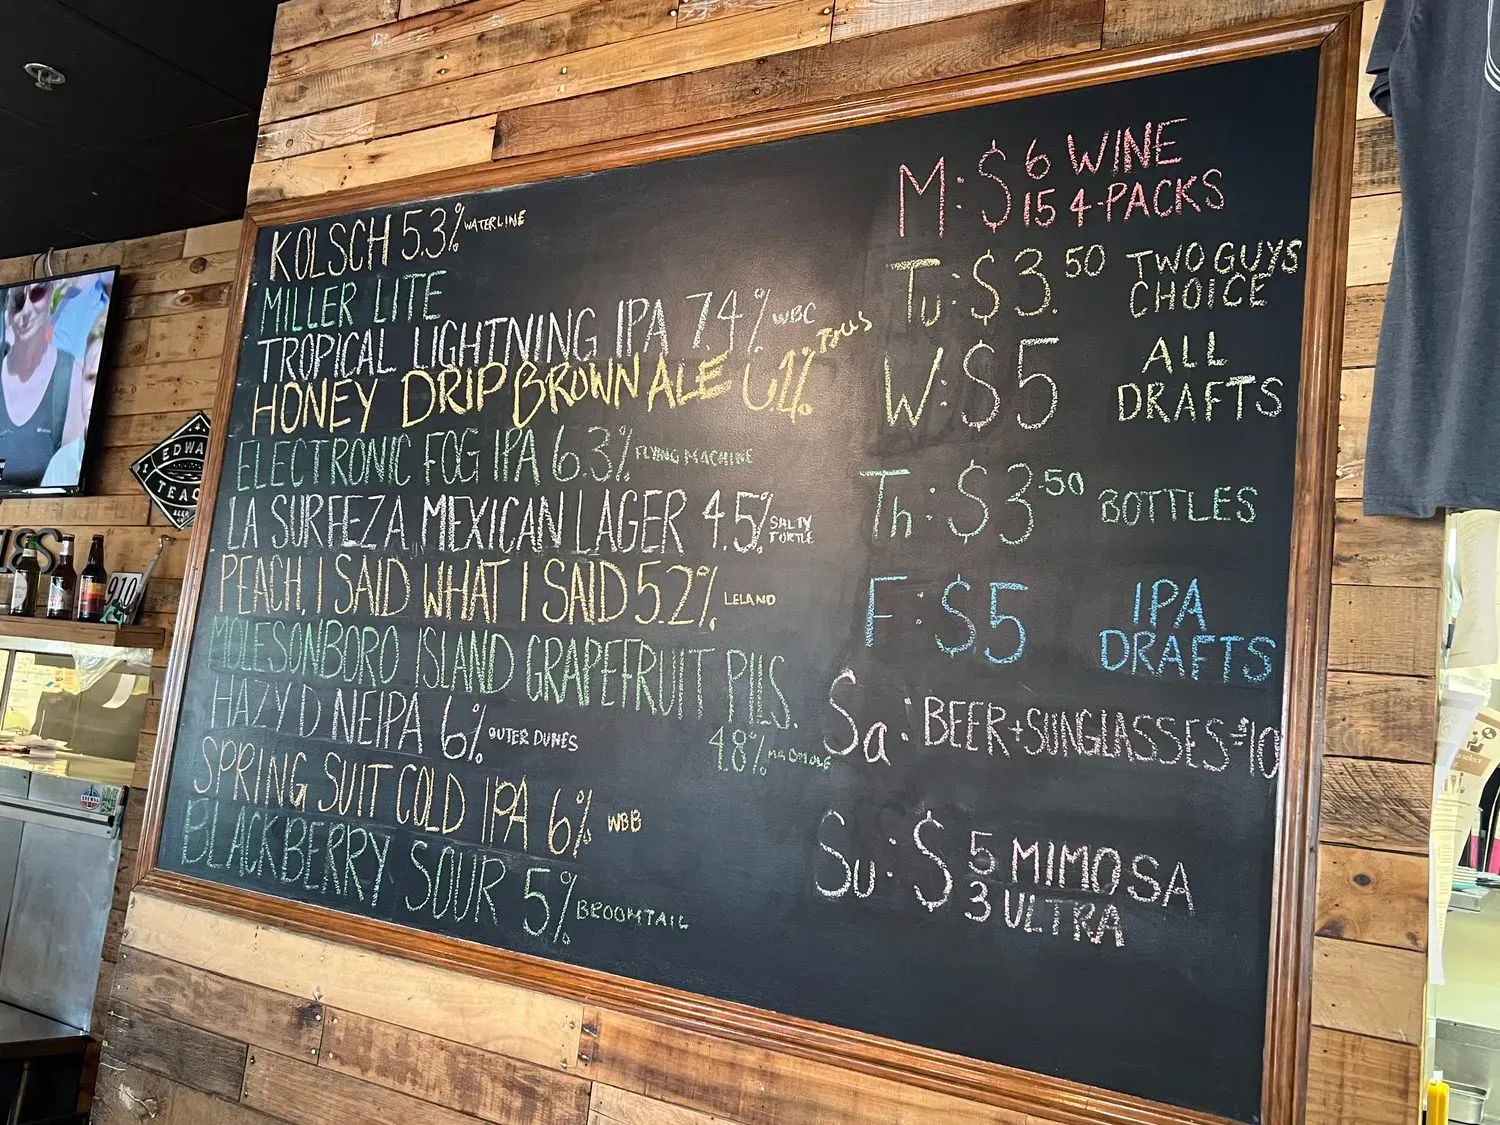 KOLSCH 5.3% WATERLINE
MILLER LITE
TROPICAL LIGHTNING IPA 7.4% WBC
HONEY DRIP BROWN ALE 6.1%
ELECTRONIC FOG IPA 6.3% FLYING MACHINE
LA SURFEZA MEXICAN LAGER 4.5% SALTY
TURTLE
PEACH, I SAID WHAT I SAID 5.2% LELAND
MOLESONBORO ISLAND GRAPEFRUIT PILS.
4.8%
HAZY D NEIPA 6% OUTER DUNES
SPRING SUIT COLD IPA 6% WBB
BLACKBERRY SOUR 5% BROOMTAIL
M: $6 WINE
15 4-PACKS
Tu: $3.50 TWO GUYS
CHOICE
W: $5 ALL
DRAFTS
Th: $3.50 BOTTLES
F: $5 IPA
DRAFTS
Sa: BEER+SUNGLASSES=$10
Su: $5 MIMOSA
3 ULTRA
EDWA
TEAC
BEER
910